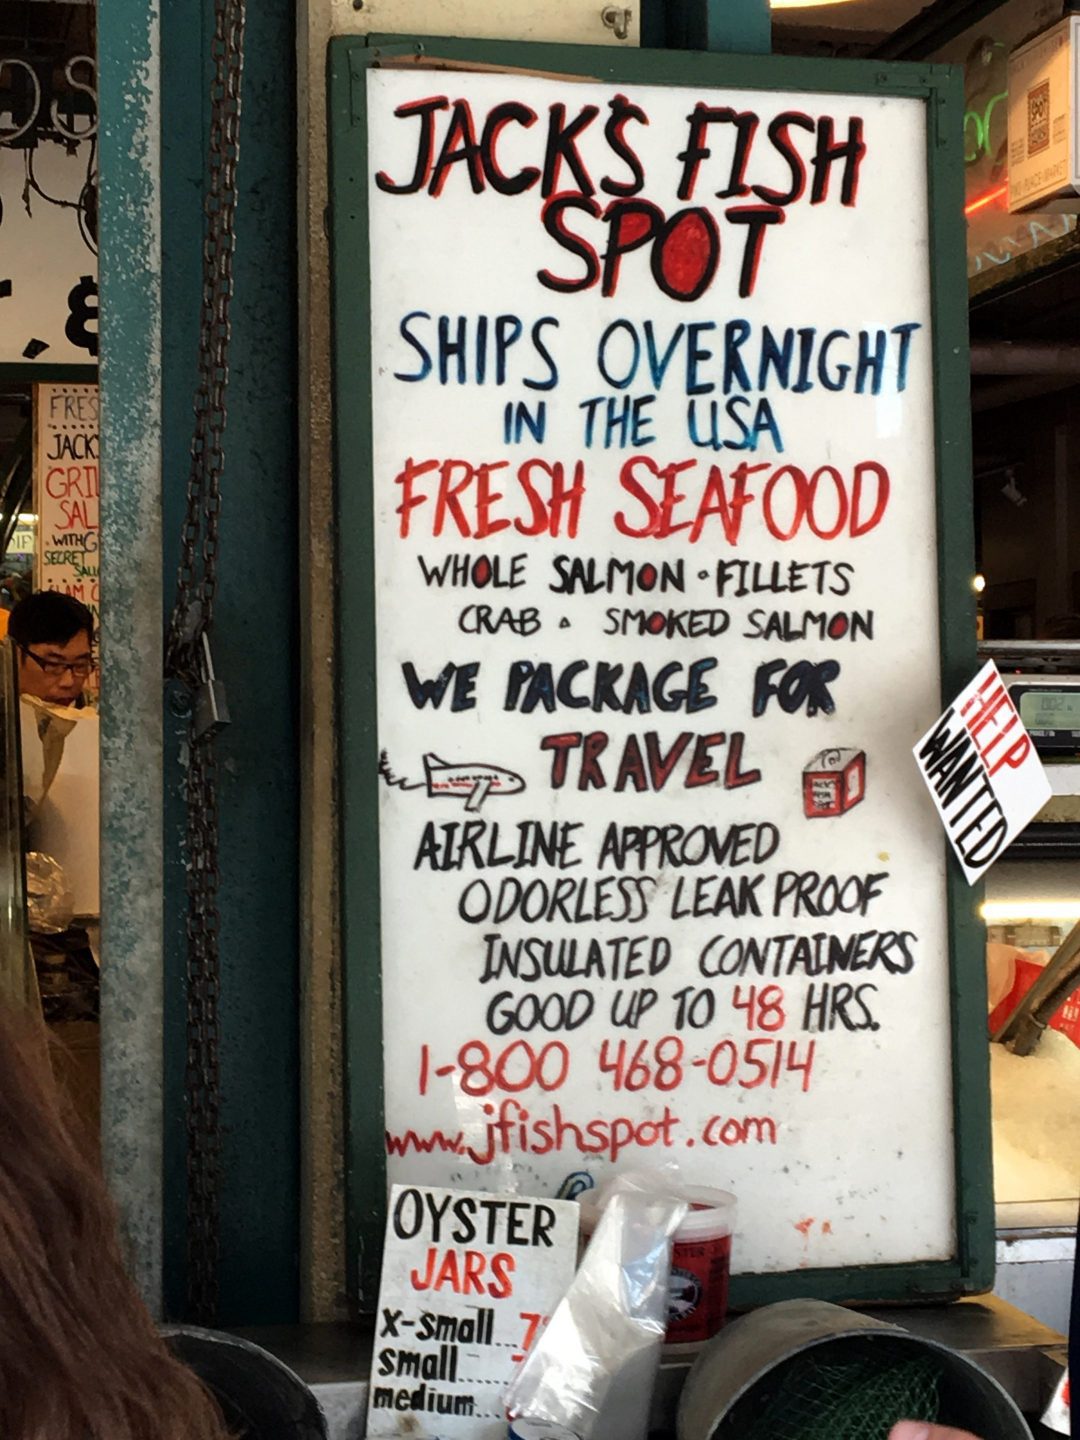 JACK'S FISH
SPOT
SHIPS OVERNIGHT
IN THE USA
FRESH SEAFOOD
WHOLE SALMON • FILLETS
CRAB • SMOKED SALMON
WE PACKAGE FOR
TRAVEL
AIRLINE APPROVED
ODORLESS LEAK PROOF
INSULATED CONTAINERS
GOOD UP TO 48 HRS.
1-800 468-0514
www.jfishspot.com
HELP
WANTED
OYSTER
JARS
x-small...7
small......
medium...
FRES
JACK
GRIL
SAL
WITH G
SECRET
&